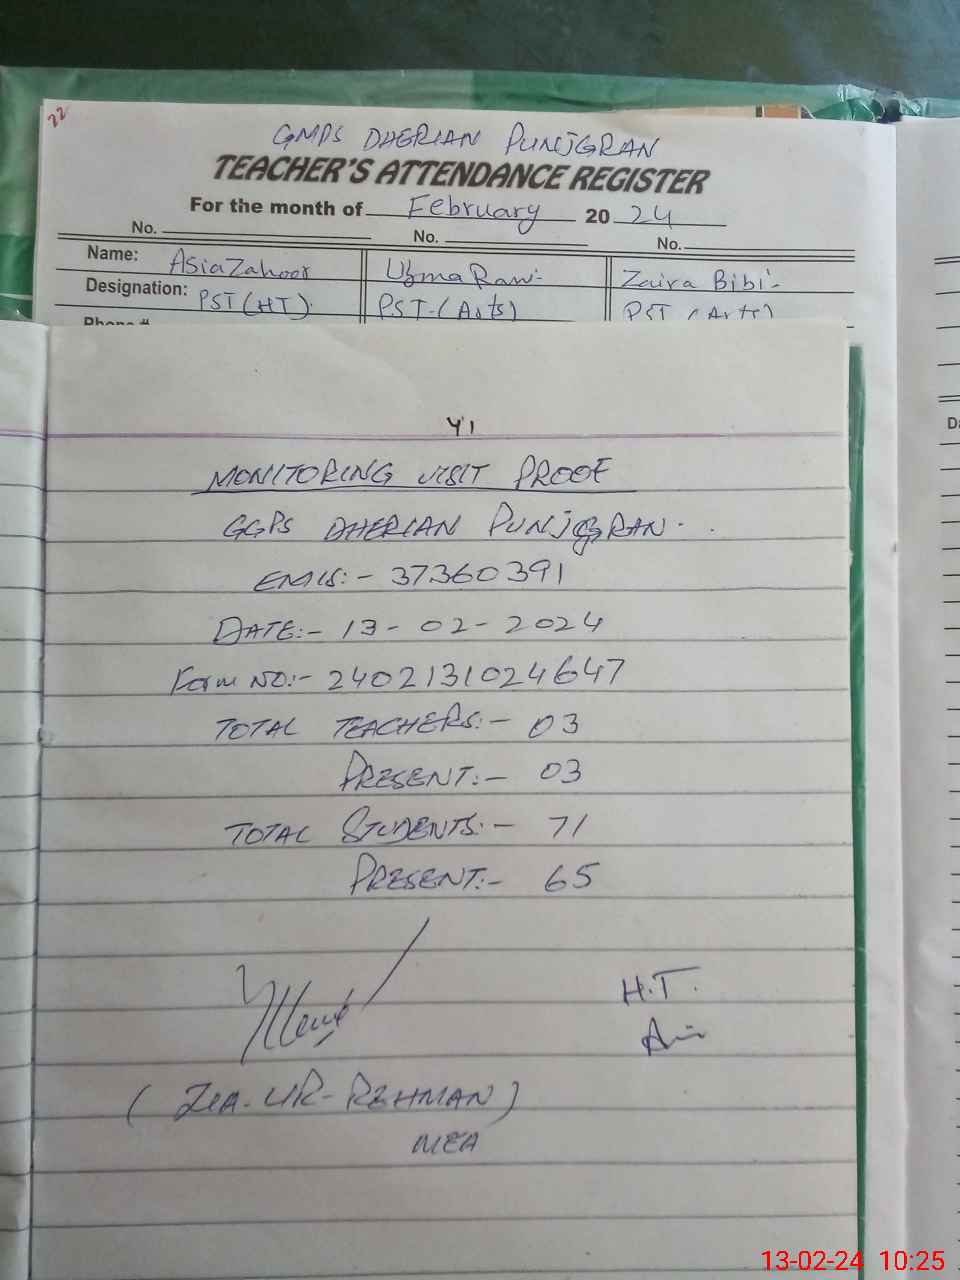 22
GMPS DHERIAN PUNJGRAN
TEACHER'S ATTENDANCE REGISTER
For the month of February 2024
No. No. No.
Name: Asia Zahoor Uzma Rani Zaira Bibi
Designation: PST (HT) PST-(Arts) PST (Arts)
Phone #
41
MONITORING VISIT PROOF
GGPS DHERIAN PUNJGRAN
EMIS:- 37360391
DATE:- 13-02-2024
Form NO:- 2402131024647
TOTAL TEACHERS:- 03
PRESENT:- 03
TOTAL STUDENTS:- 71
PRESENT:- 65
H.T.
(ZIA-UR-REHMAN)
MEA
13-02-24 10:25